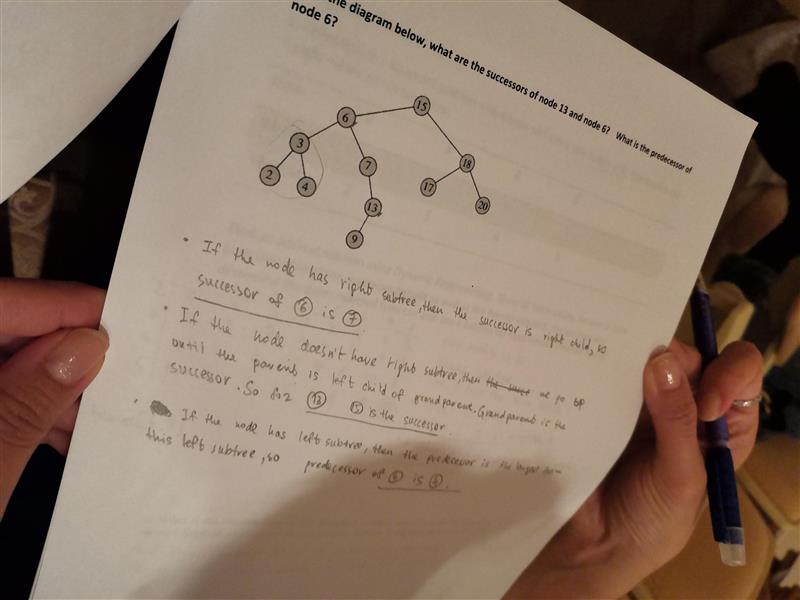 the diagram below, what are the successors of node 13 and node 6? What is the predecessor of
node 6?
15
6
3
7
18
2
4
17
13
20
9
• If the node has right subtree, then the successor is right child, so
successor of 6 is 7.
• If the node doesn't have right subtree, then we go up
until the parent is left child of grandparent. Grandparent is the
successor. So for 13 15 is the successor.
• If the node has left subtree, then the predecessor is the largest from
this left subtree, so predecessor of 6 is 4.